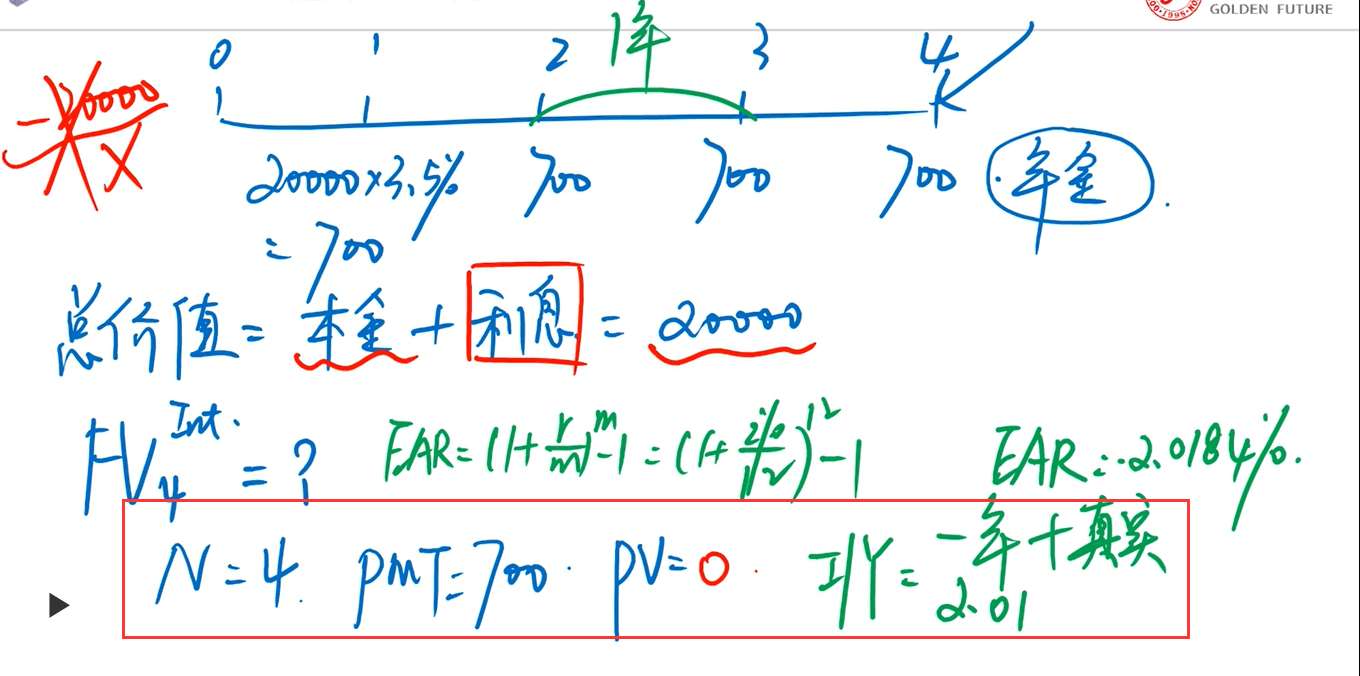 GOLDEN FUTURE
0 1 2 1年 3 4
-20000
X
20000×3.5% 700 700 700 年金
= 700
总价值 = 本金 + 利息 = 20000
FV₄ Int. = ? EAR = (1+r/m)^m-1 = (1+2%/12)^12-1 EAR = 2.0184%.
N=4. PMT=700. PV=0. I/Y = 一年+真实
2.01